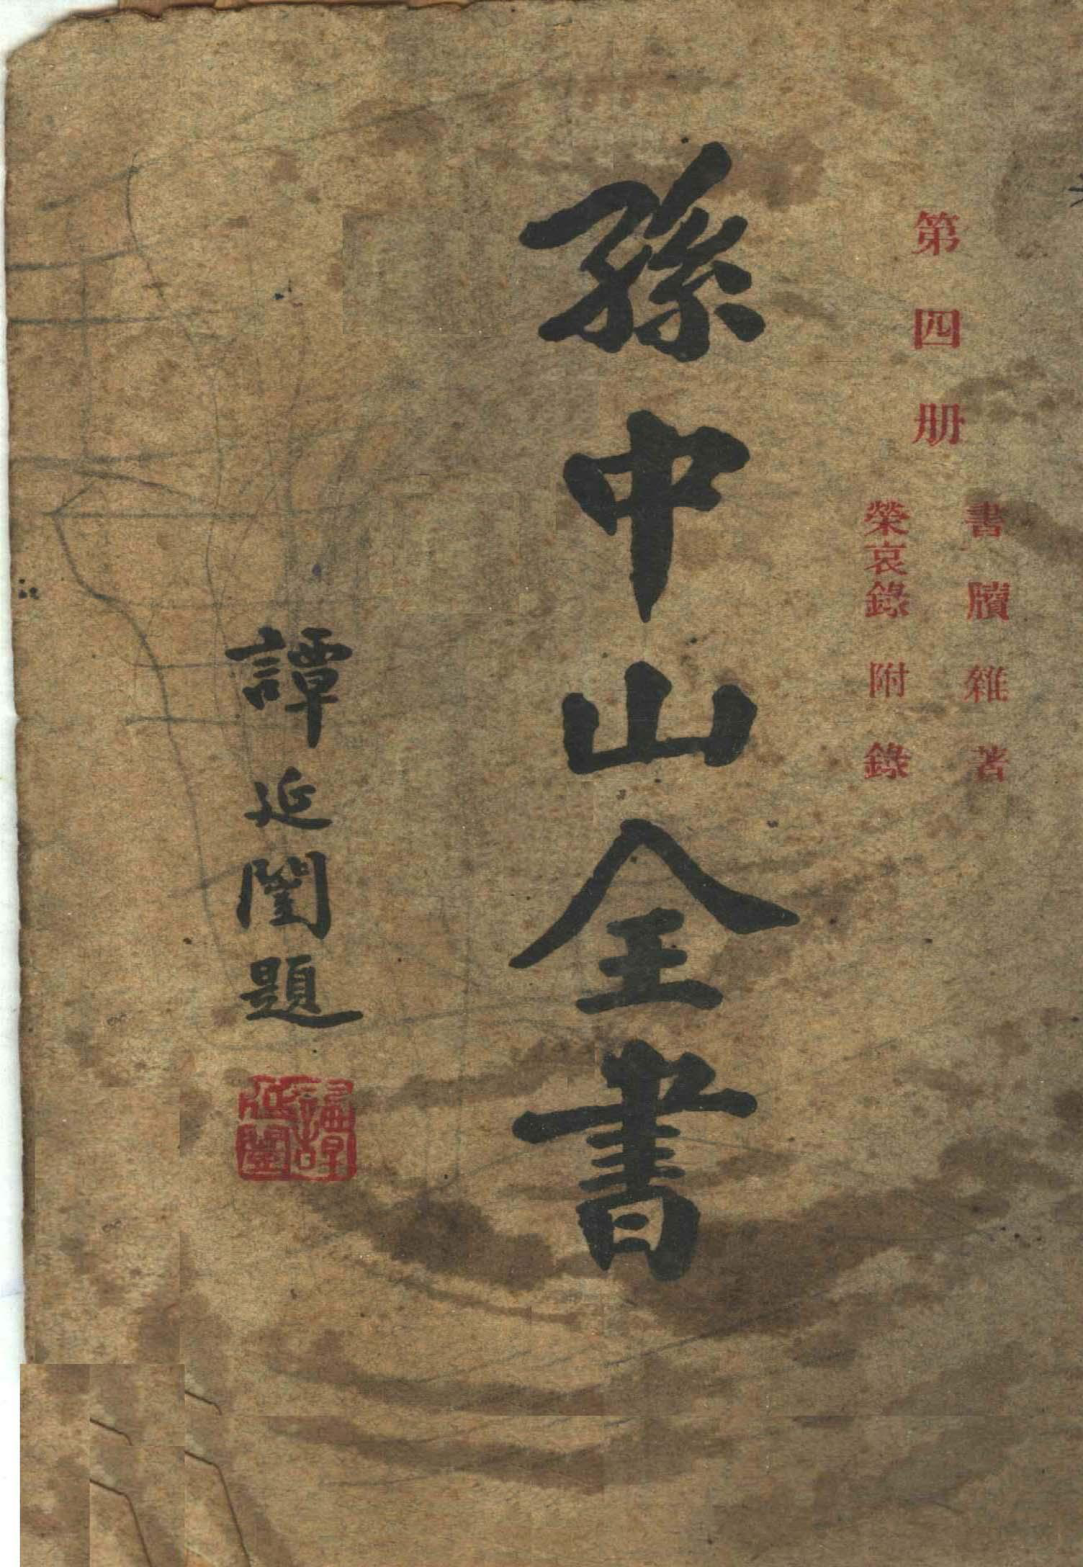 第四册
書牘雜著
榮哀錄附錄
孫中山全書
譚延闓題